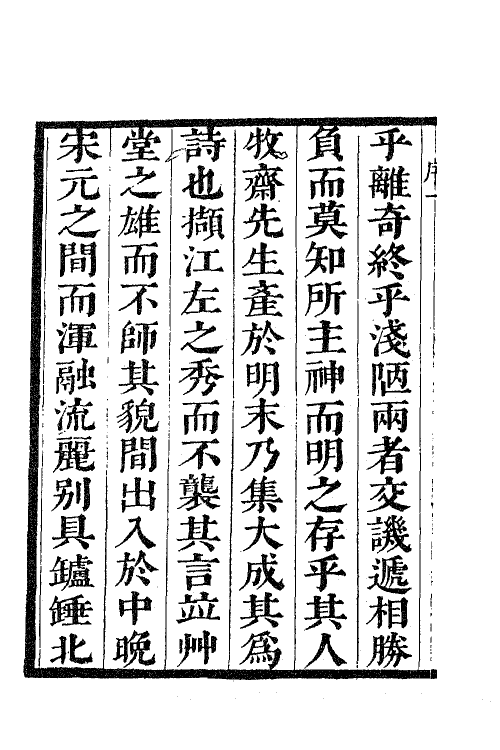 乎離奇終乎淺陋兩者交譏遞相勝
負而莫知所主神而明之存乎其人
牧齋先生產於明末乃集大成其爲
詩也擷江左之秀而不襲其言竝艸
堂之雄而不師其貌間出入於中晚
宋元之間而渾融流麗别具鑪錘北